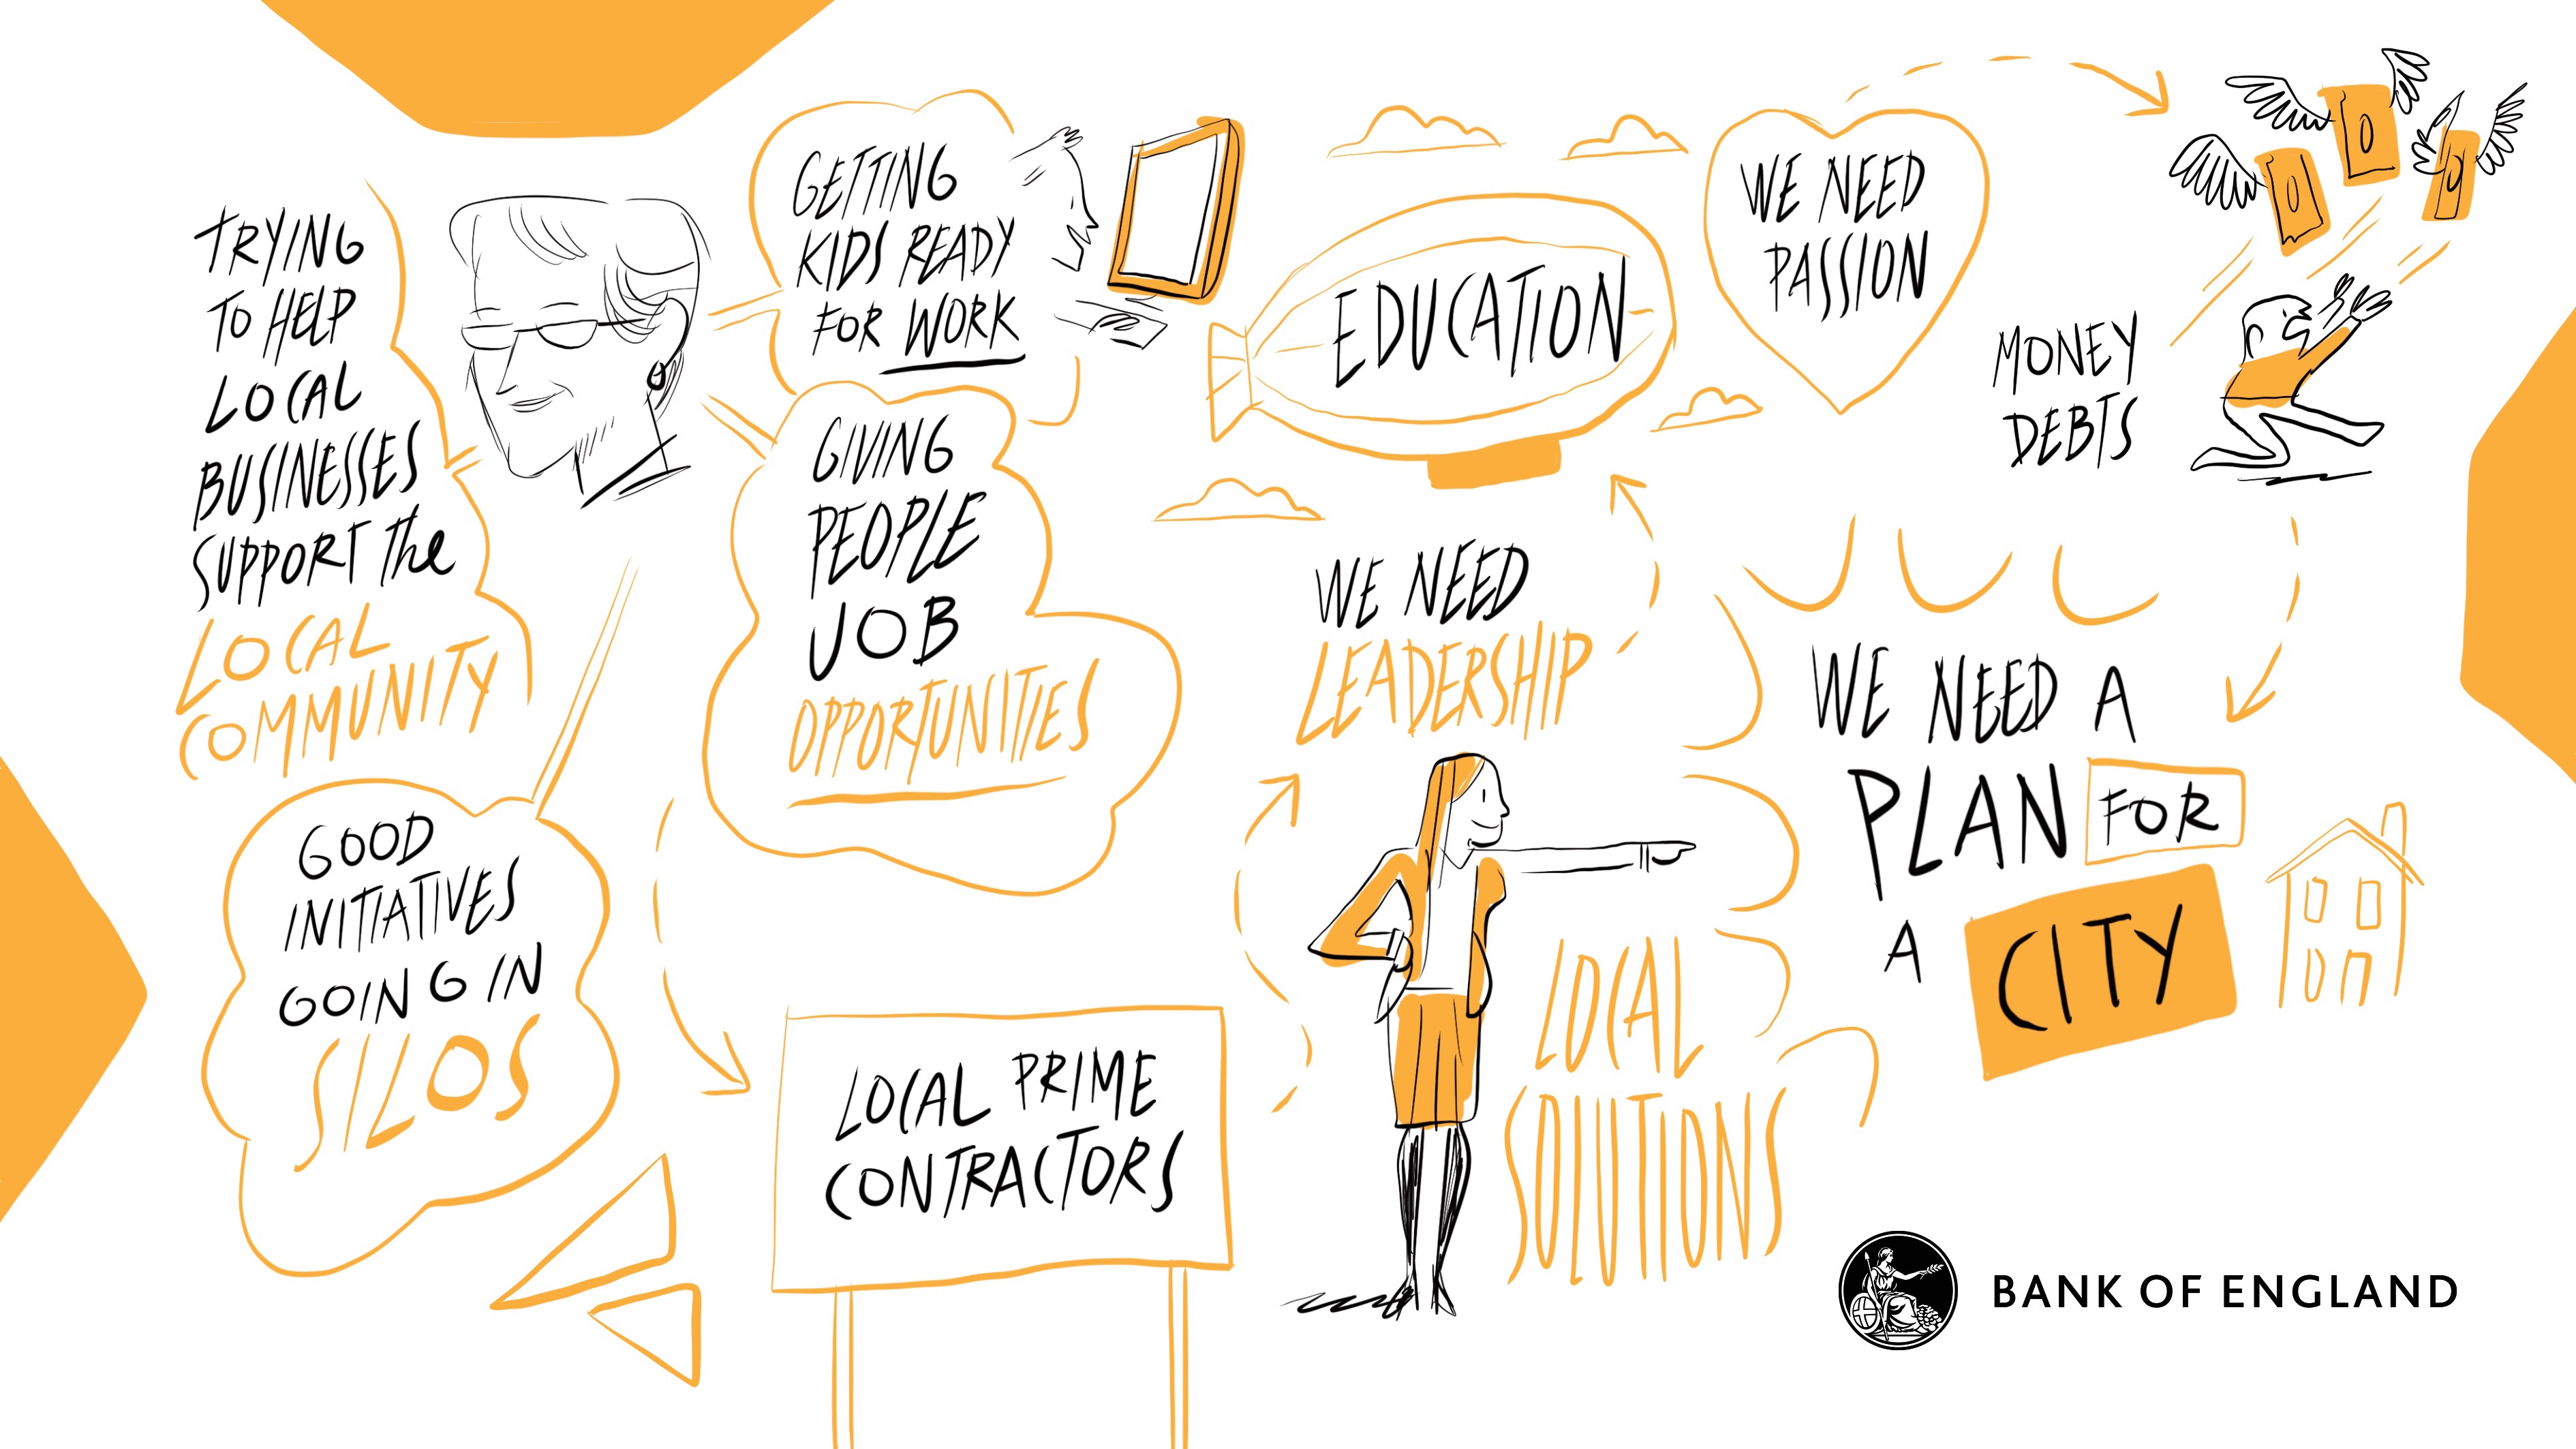 TRYING
TO HELP
LOCAL
BUSINESSES
SUPPORT The
LOCAL
COMMUNITY
GETTING
KIDS READY
FOR WORK
GIVING
PEOPLE
JOB
OPPORTUNITIES
GOOD
INITIATIVES
GOING IN
SILOS
LOCAL PRIME
CONTRACTORS
EDUCATION
WE NEED
LEADERSHIP
LOCAL
SOLUTIONS
WE NEED
PASSION
MONEY
DEBTS
WE NEED A
PLAN FOR
A CITY
BANK OF ENGLAND